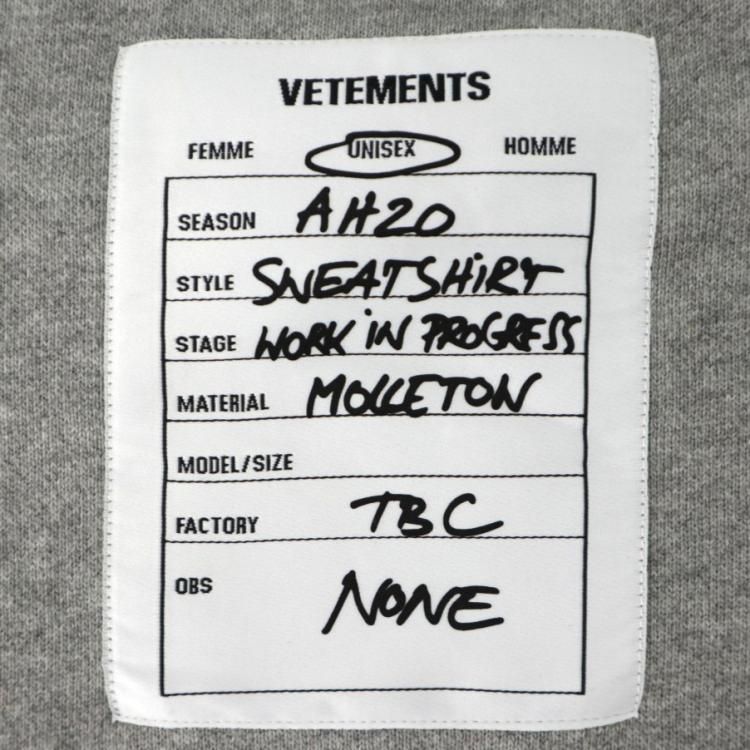 VETEMENTS
FEMME UNISEX HOMME
SEASON AH20
STYLE SWEATSHiRT
STAGE WORK iN PROGRESS
MATERIAL MOLLETON
MODEL/SIZE
FACTORY TBC
OBS NONE